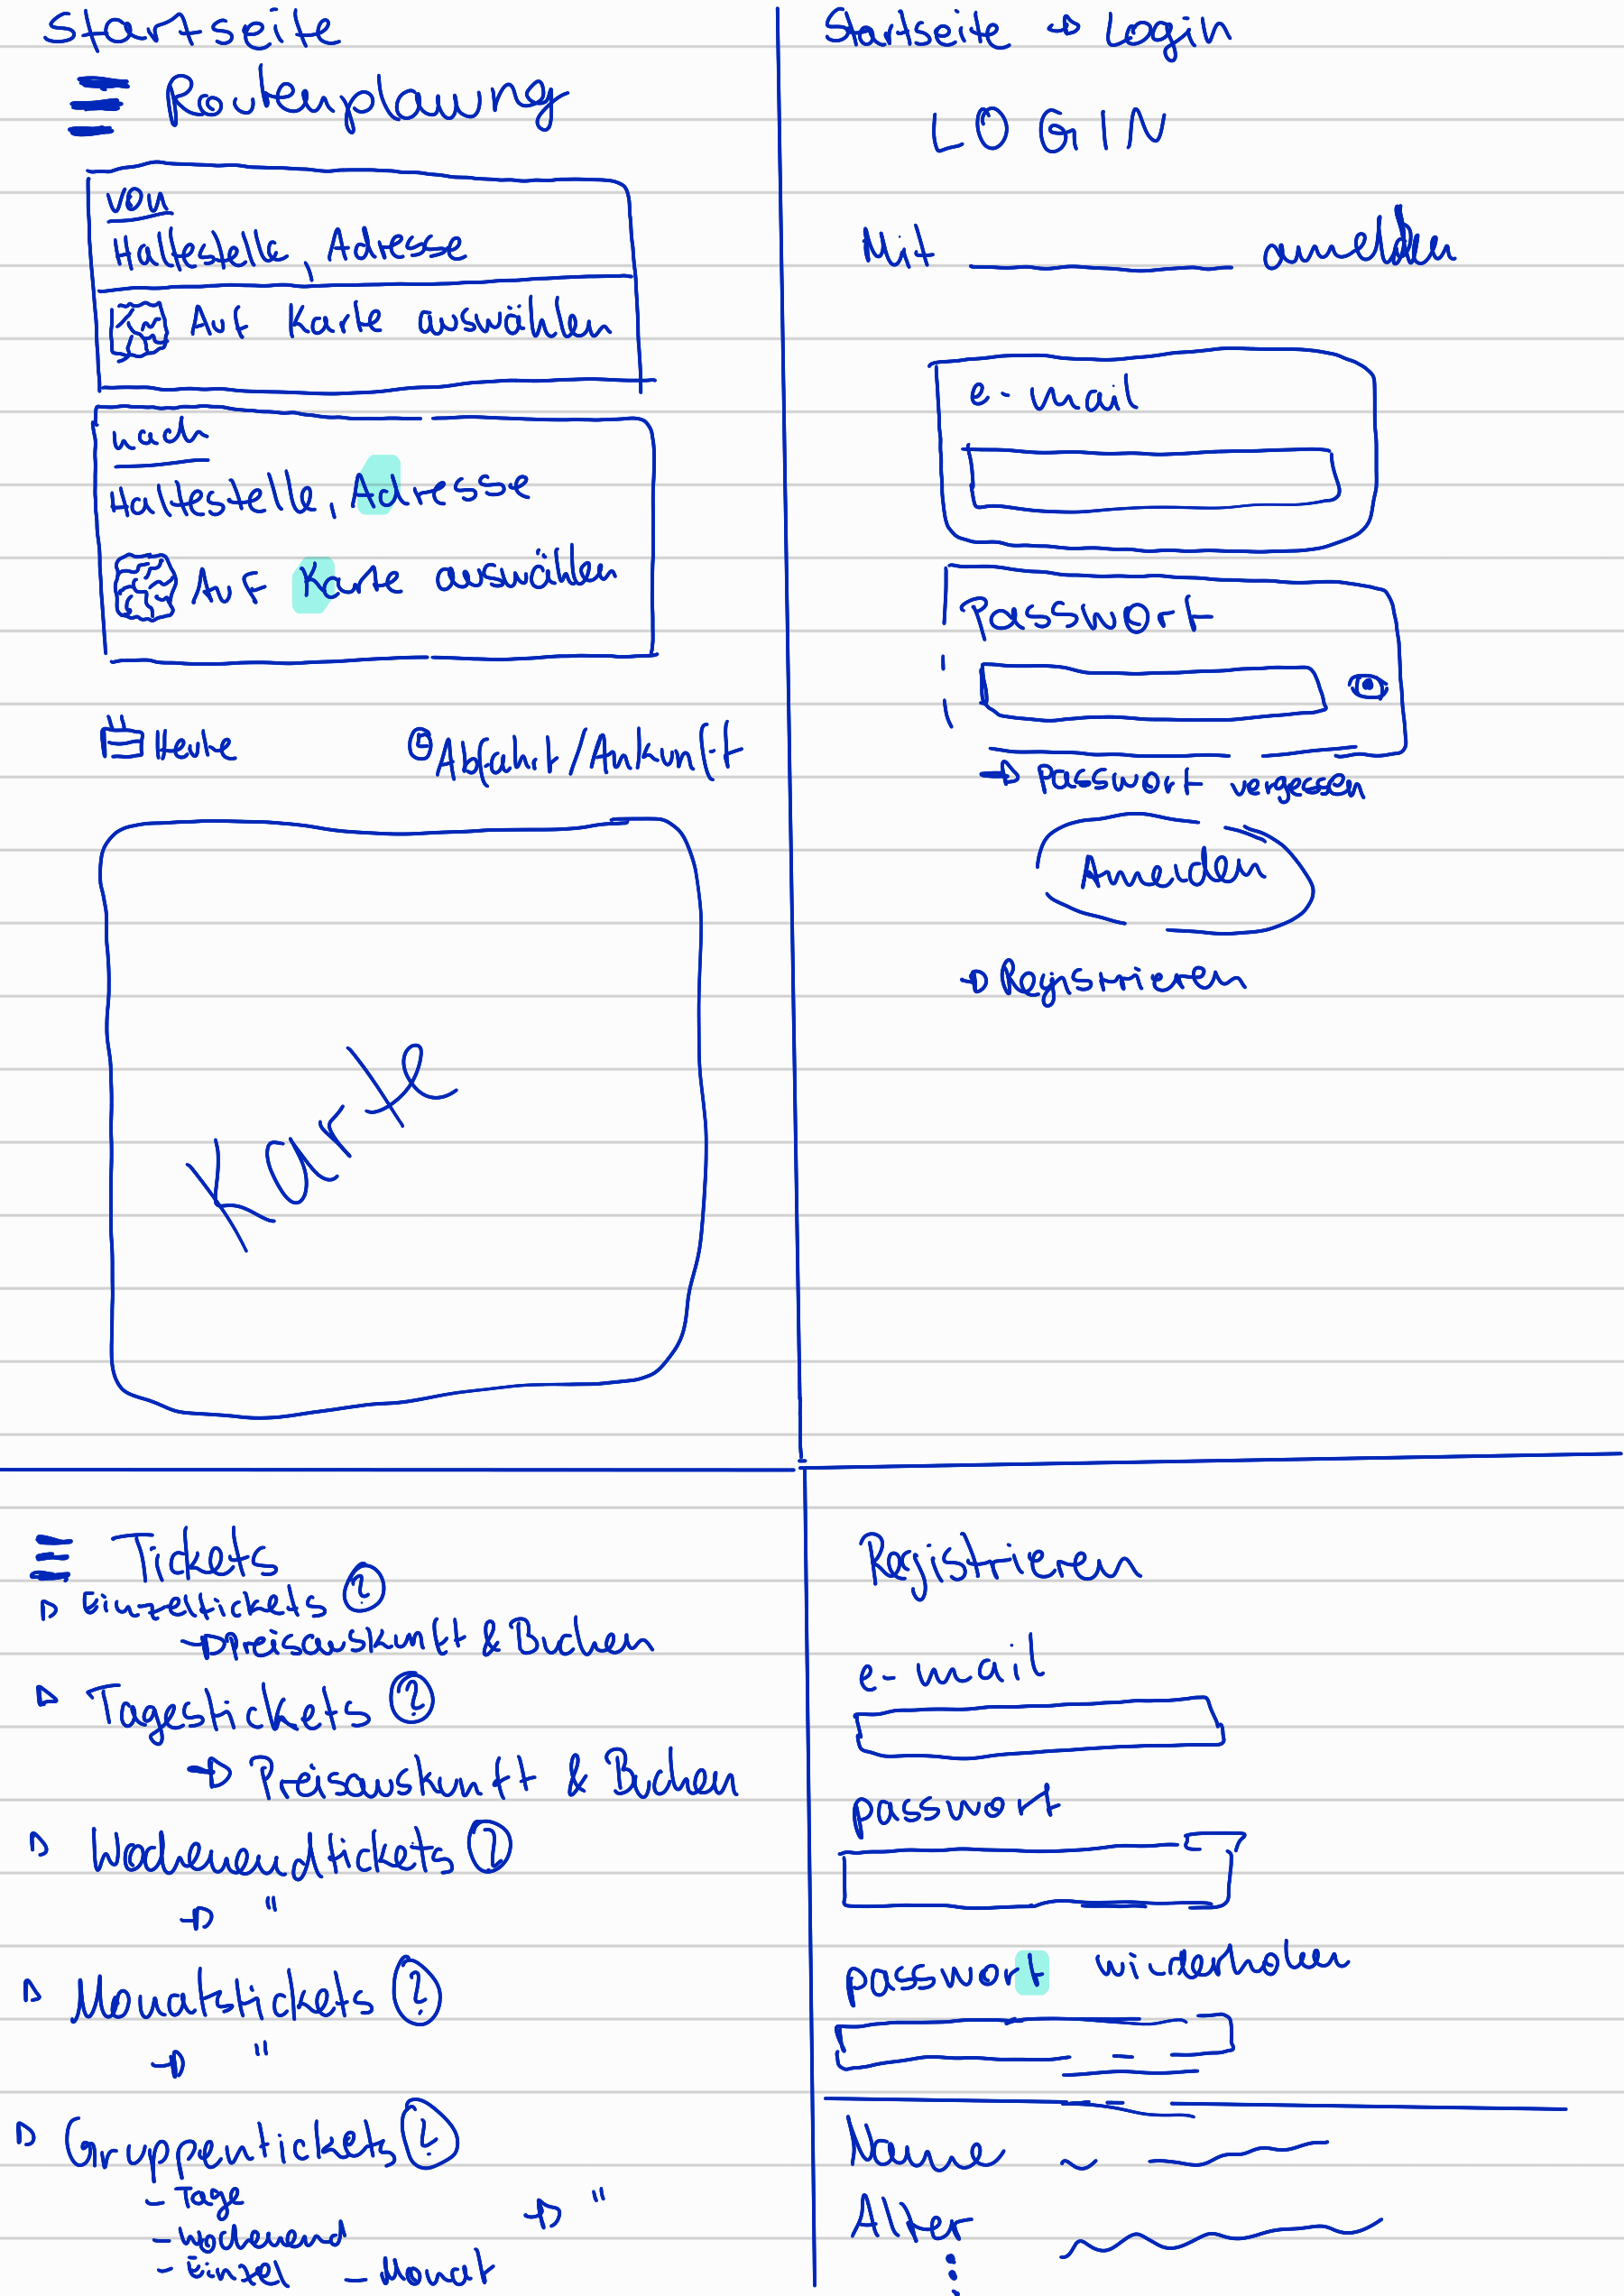 Startseite
Routenplanung
von
Haltestelle, Adresse
Auf Karte auswählen
nach
Haltestelle, Adresse
Auf Karte auswählen
Heute
Abfahrt/Ankunft
Karte
Startseite → Login
LOGIN
Mit ________ anmelden
e-mail
Passwort
→ Passwort vergessen
Anmelden
→ Registrieren
Tickets
▷ Einzeltickets ?
→ Preisauskunft & Buchen
▷ Tagestickets ?
→ Preisauskunft & Buchen
▷ Wochenendtickets ?
→ "
▷ Monatstickets ?
→ "
▷ Gruppentickets ?
- Tage
→ "
- Wochenend
- Einzel - Monat
Registrieren
e-mail
passwort
passwort wiederholen
Name
Alter
⋮